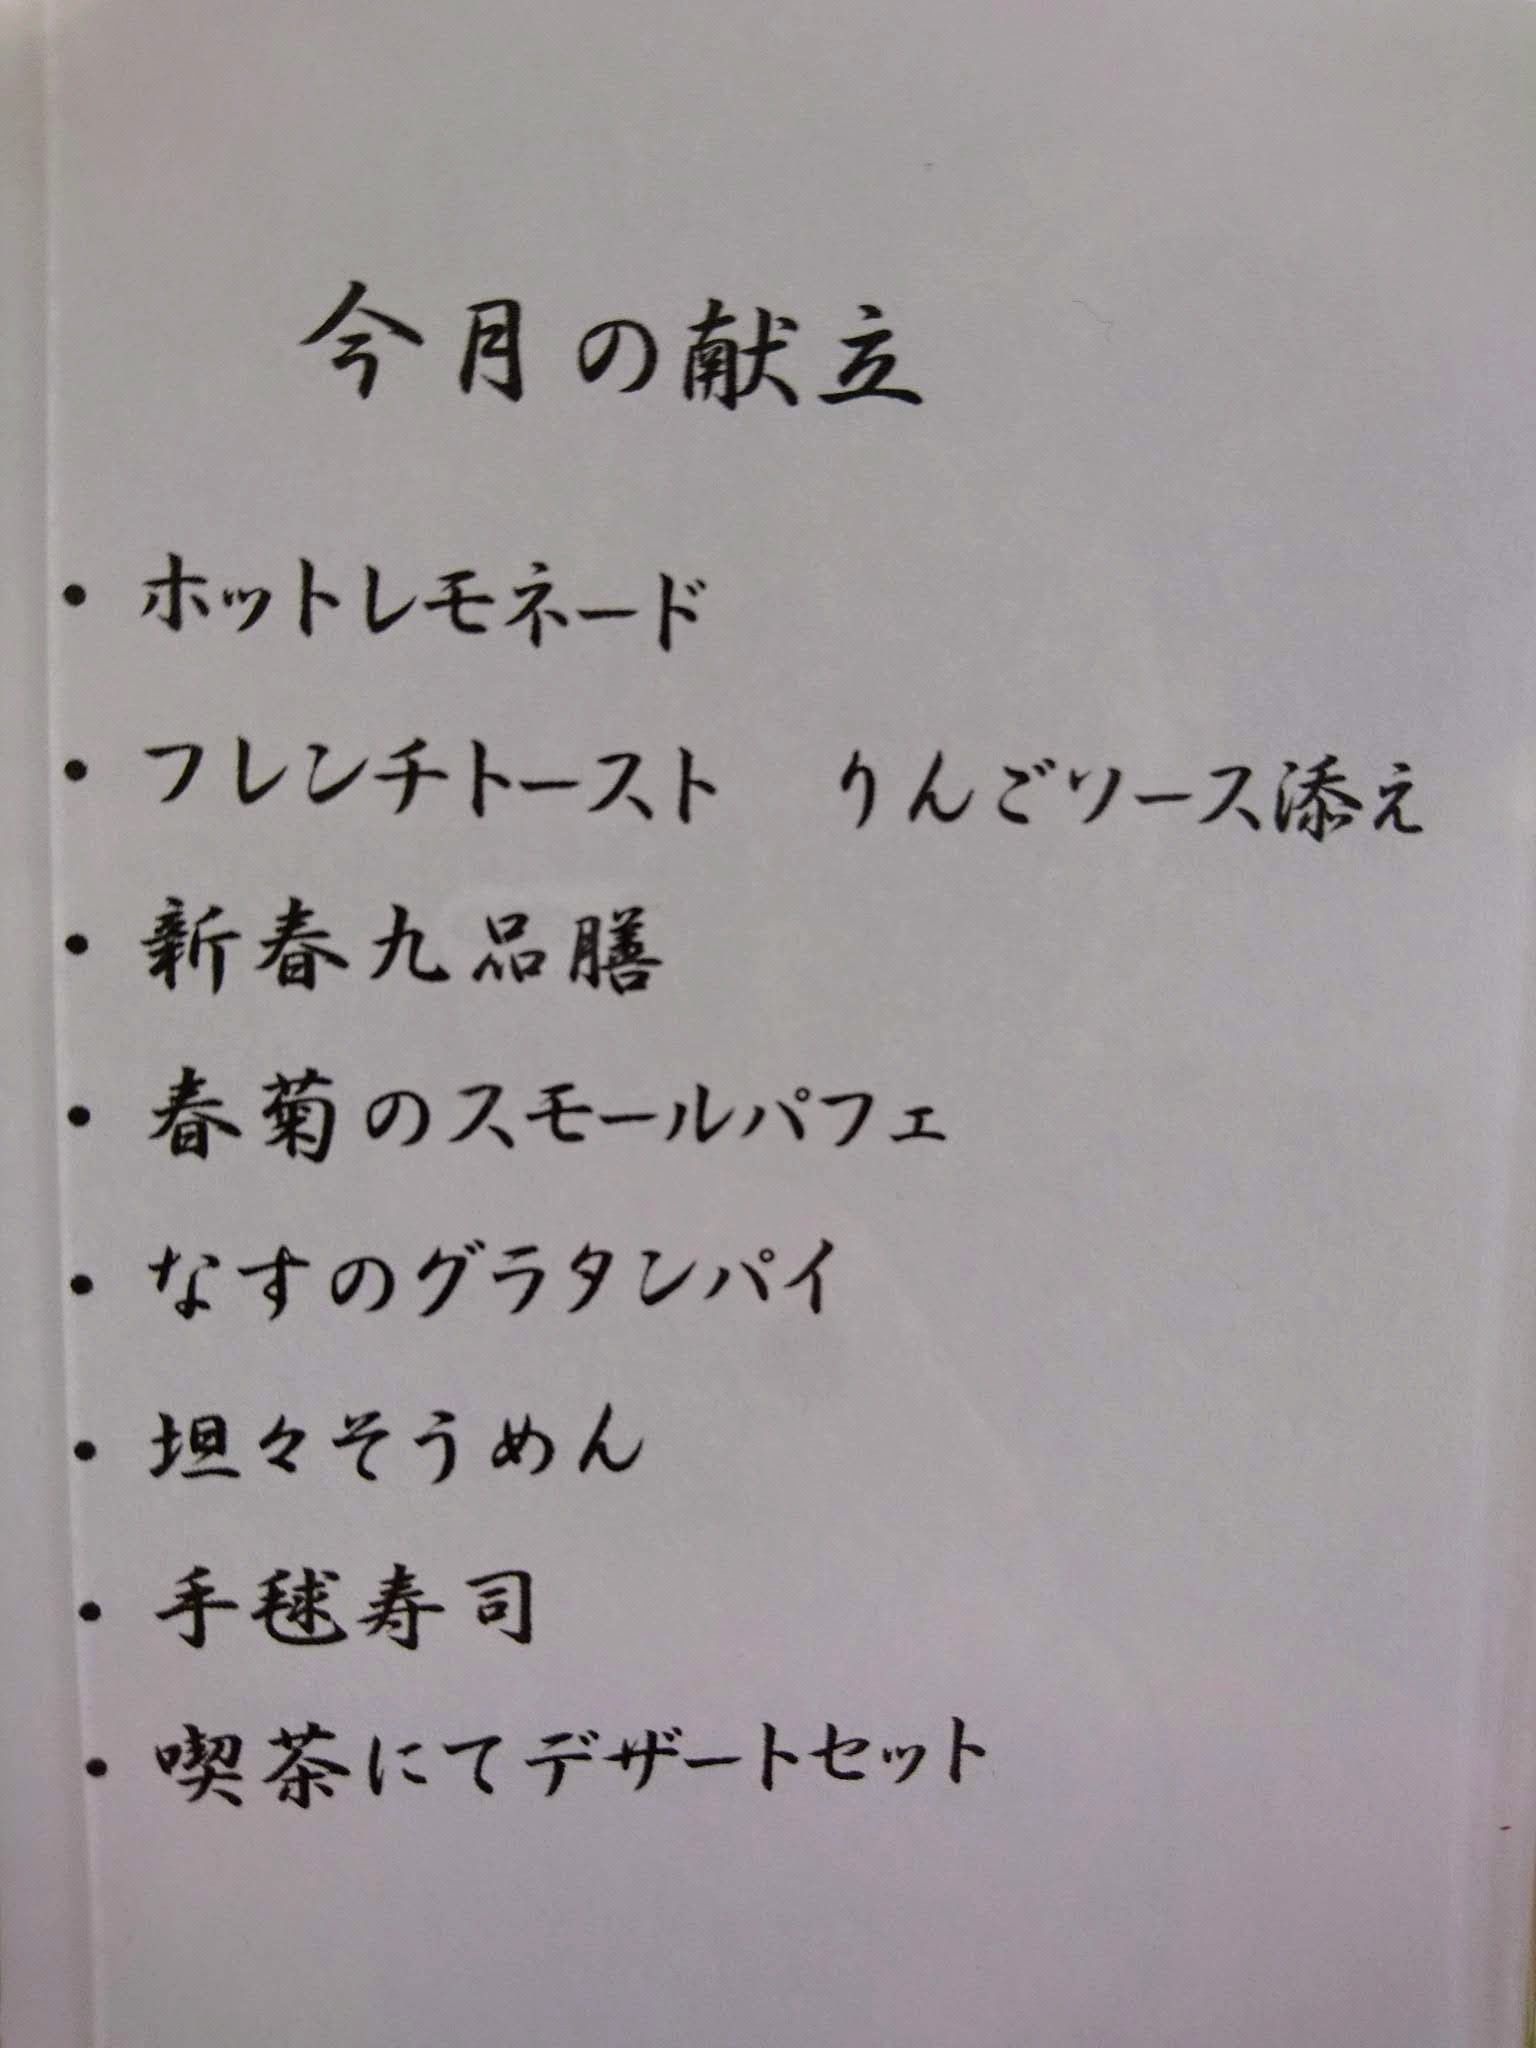 今月の献立
・ホットレモネード
・フレンチトースト　りんごソース添え
・新春九品膳
・春菊のスモールパフェ
・なすのグラタンパイ
・坦々そうめん
・手毬寿司
・喫茶にてデザートセット